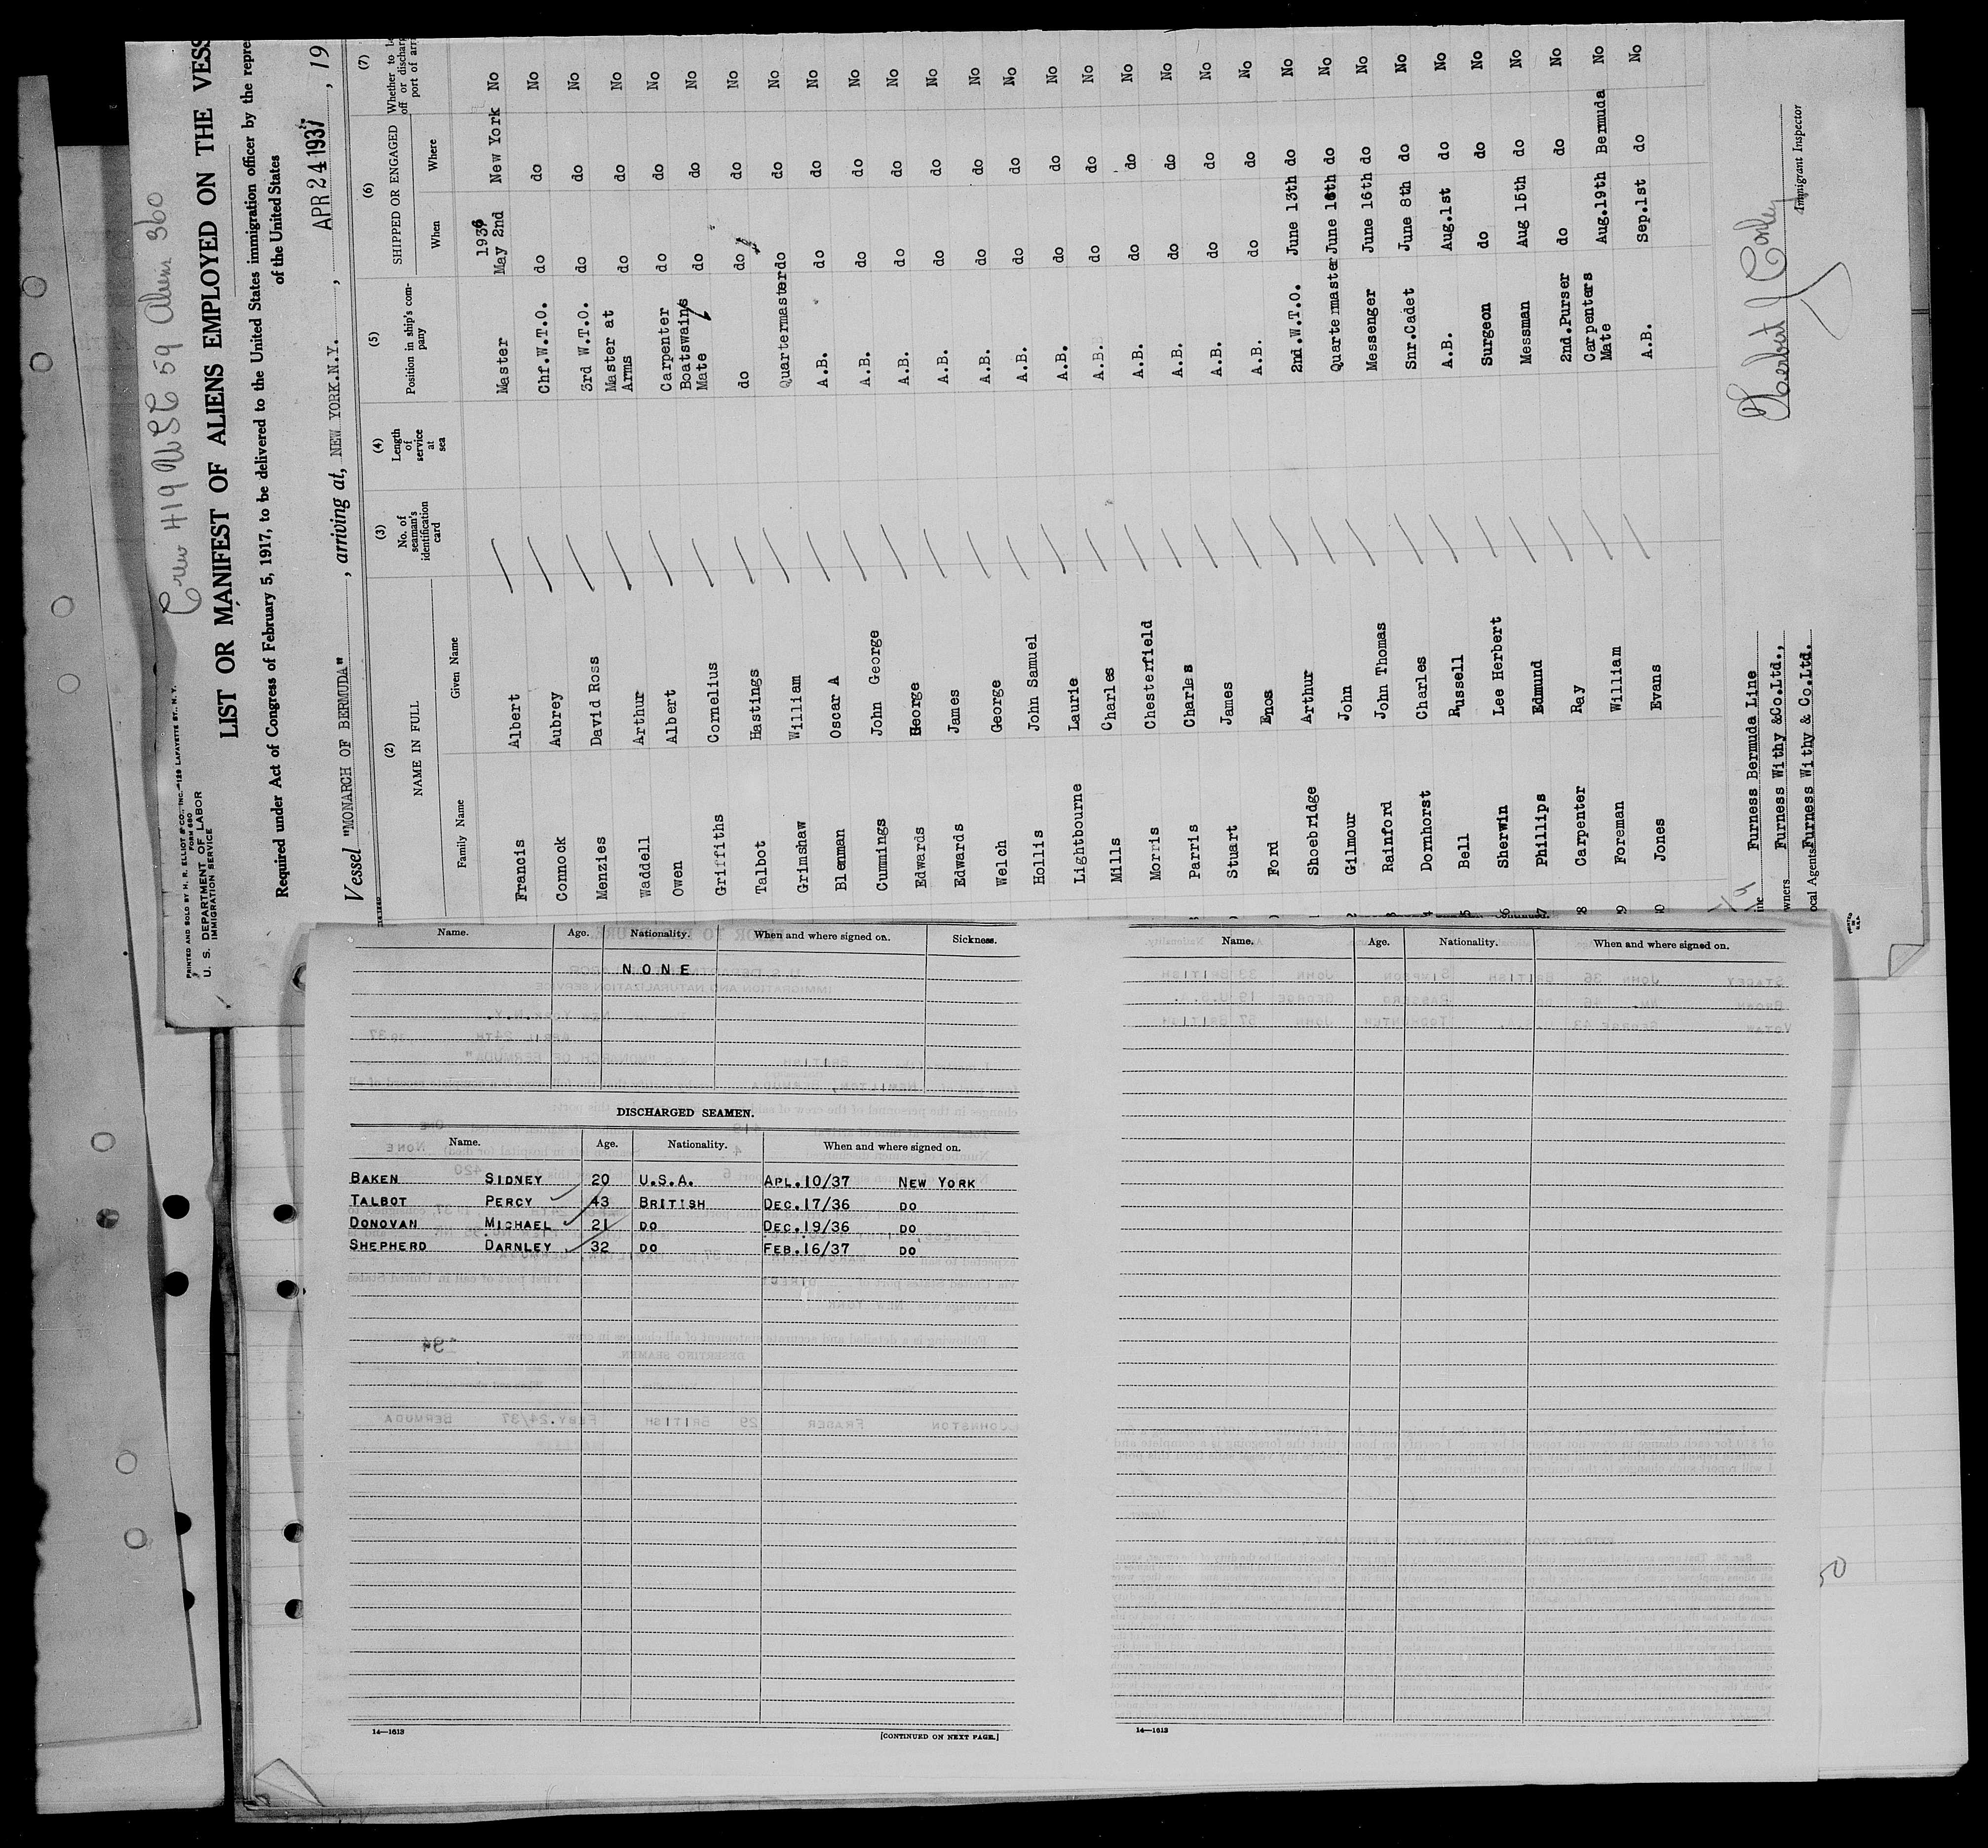 Crew 419 USC 59 Aliens 360
PRINTED AND SOLD BY H. R. ELLIOT & CO., INC.—129 LAFAYETTE ST., N. Y.
FORM 680
U. S. DEPARTMENT OF LABOR
IMMIGRATION SERVICE
LIST OR MANIFEST OF ALIENS EMPLOYED ON THE VESS
Required under Act of Congress of February 5, 1917, to be delivered to the United States immigration officer by the repre
of the United States
Vessel "MONARCH OF BERMUDA" , arriving at, NEW YORK.N.Y. , APR 24 1937 , 19
(2) (3) (4) (5) (6) (7)
NAME IN FULL No. of seaman's identification card Length of service at sea Position in ship's company SHIPPED OR ENGAGED Whether to be
off or discharg
port of arri
Family Name Given Name When Where
1936
Francis Albert Master May 2nd New York No
Connock Aubrey Chf.W.T.O. do do No
Menzies David Ross 3rd W.T.O. do do No
Waddell Arthur Master at Arms do do No
Owen Albert Carpenter do do No
Griffiths Cornelius Boatswains Mate do do No
Talbot Hastings do do do No
Grimshaw William Quartermaster do do No
Blenman Oscar A A.B. do do No
Cummings John George A.B. do do No
Edwards George A.B. do do No
Edwards James A.B. do do No
Welch George A.B. do do No
Hollis John Samuel A.B. do do No
Lightbourne Laurie A.B. do do No
Mills Charles A.B. do do No
Morris Chesterfield A.B. do do No
Parris Charles A.B. do do No
Stuart James A.B. do do No
Ford Enos A.B. do do No
Shoebridge Arthur 2nd.W.T.O. June 13th do No
Gilmour John Quartermaster June 16th do No
Rainford John Thomas Messenger June 16th do No
Dornhorst Charles Snr.Cadet June 8th do No
Bell Russell A.B. Aug.1st do No
Sherwin Lee Herbert Surgeon do do No
Phillips Edmund Messman Aug 15th do No
Carpenter Ray 2nd.Purser do do No
Foreman William Carpenters Mate Aug.19th Bermuda No
Jones Evans A.B. Sep.1st do No
Line Furness Bermuda Line
wners Furness Withy &Co.Ltd.,
ocal Agents Furness Withy & Co.Ltd.
Herbert J Conley
Immigrant Inspector
Name. Age. Nationality. When and where signed on. Sickness.
NONE
DISCHARGED SEAMEN.
Name. Age. Nationality. When and where signed on.
BAKEN SIDNEY 20 U.S.A. APL.10/37 NEW YORK
TALBOT PERCY 43 BRITISH DEC.17/36 DO
DONOVAN MICHAEL 21 DO DEC.19/36 DO
SHEPHERD DARNLEY 32 DO FEB.16/37 DO
14—1613 [CONTINUED ON NEXT PAGE.]
Name. Age. Nationality. When and where signed on.
14—1613
50